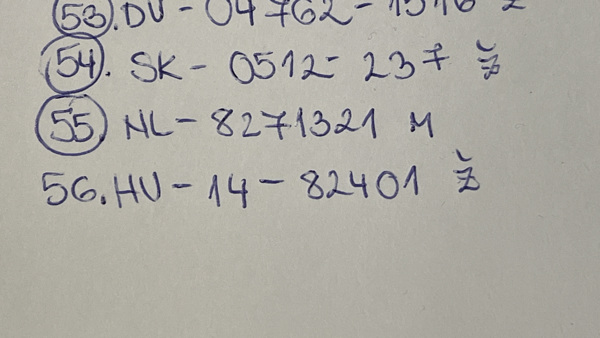 53. DV - 04762 - 1516 Ž
54. SK - 0512 - 237 Ž
55. NL - 8271321 M
56. HU - 14 - 82401 Ž